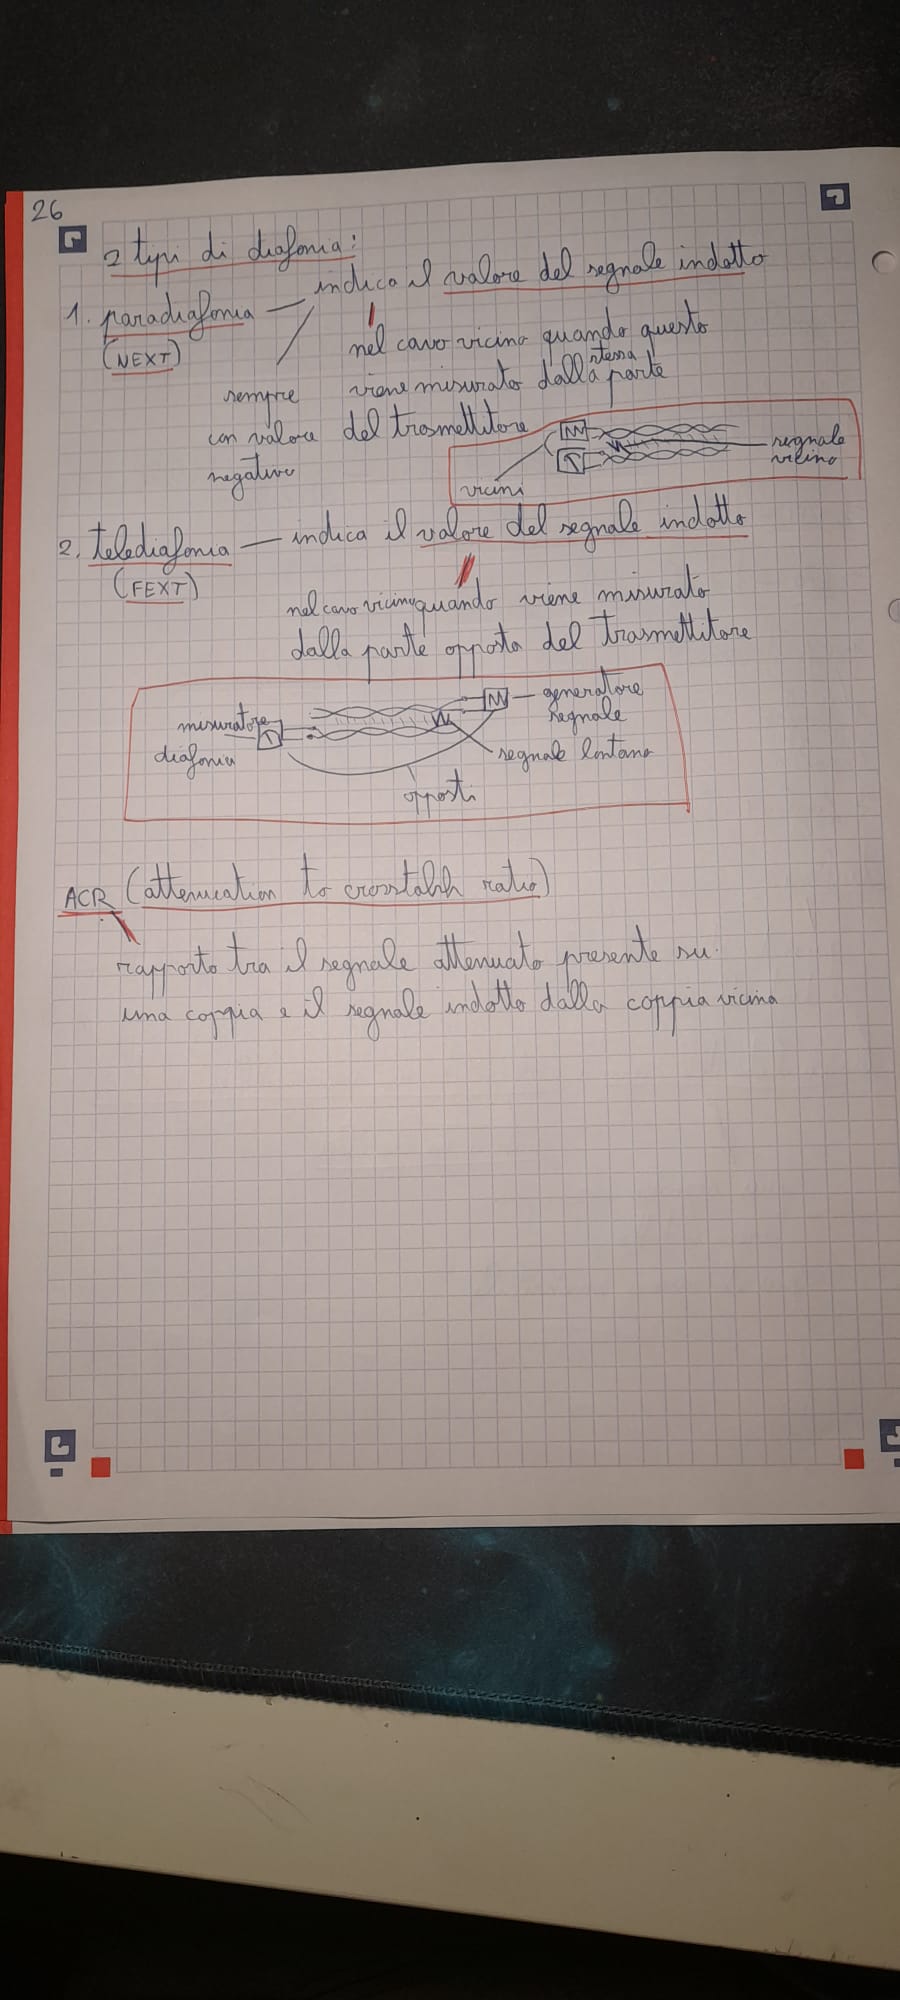 26
2 tipi di diafonia:
1. paradiafonia — indica il valore del segnale indotto
(NEXT)
nel cavo vicino quando questo
viene misurato dalla stessa parte
del trasmettitore
sempre
con valore
negativo
vicini
segnale
vicino
2. telediafonia — indica il valore del segnale indotto
(FEXT)
nel cavo vicino quando viene misurato
dalla parte opposta del trasmettitore
misuratore
diafonia
generatore
segnale
segnale lontano
opposti
ACR (attenuation to crosstalk ratio)
rapporto tra il segnale attenuato presente su
una coppia e il segnale indotto dalla coppia vicina